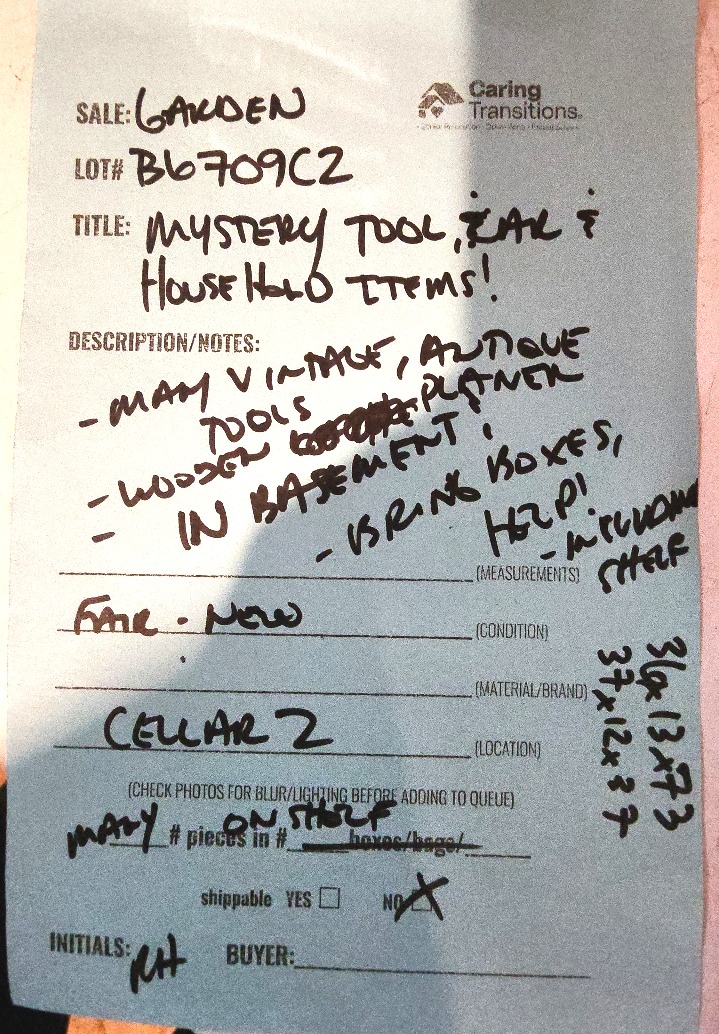 Caring
Transitions
SALE: GARDEN
LOT# B6709C2
TITLE: MYSTERY TOOL, CAR &
HOUSEHOLD ITEMS!
DESCRIPTION/NOTES:
- MANY VINTAGE, ANTIQUE
TOOLS
- WOODEN PLANER
- IN BASEMENT!
- BRING BOXES,
HELP!
- INCLUDING
SHELF
(MEASUREMENTS)
FAIR - NEW (CONDITION)
(MATERIAL/BRAND)
36 x 13 x 73
37 x 12 x 37
CELLAR 2 (LOCATION)
(CHECK PHOTOS FOR BLUR/LIGHTING BEFORE ADDING TO QUEUE)
MANY # pieces in # ON SHELF boxes/bags/
shippable YES NO X
INITIALS: RH BUYER: